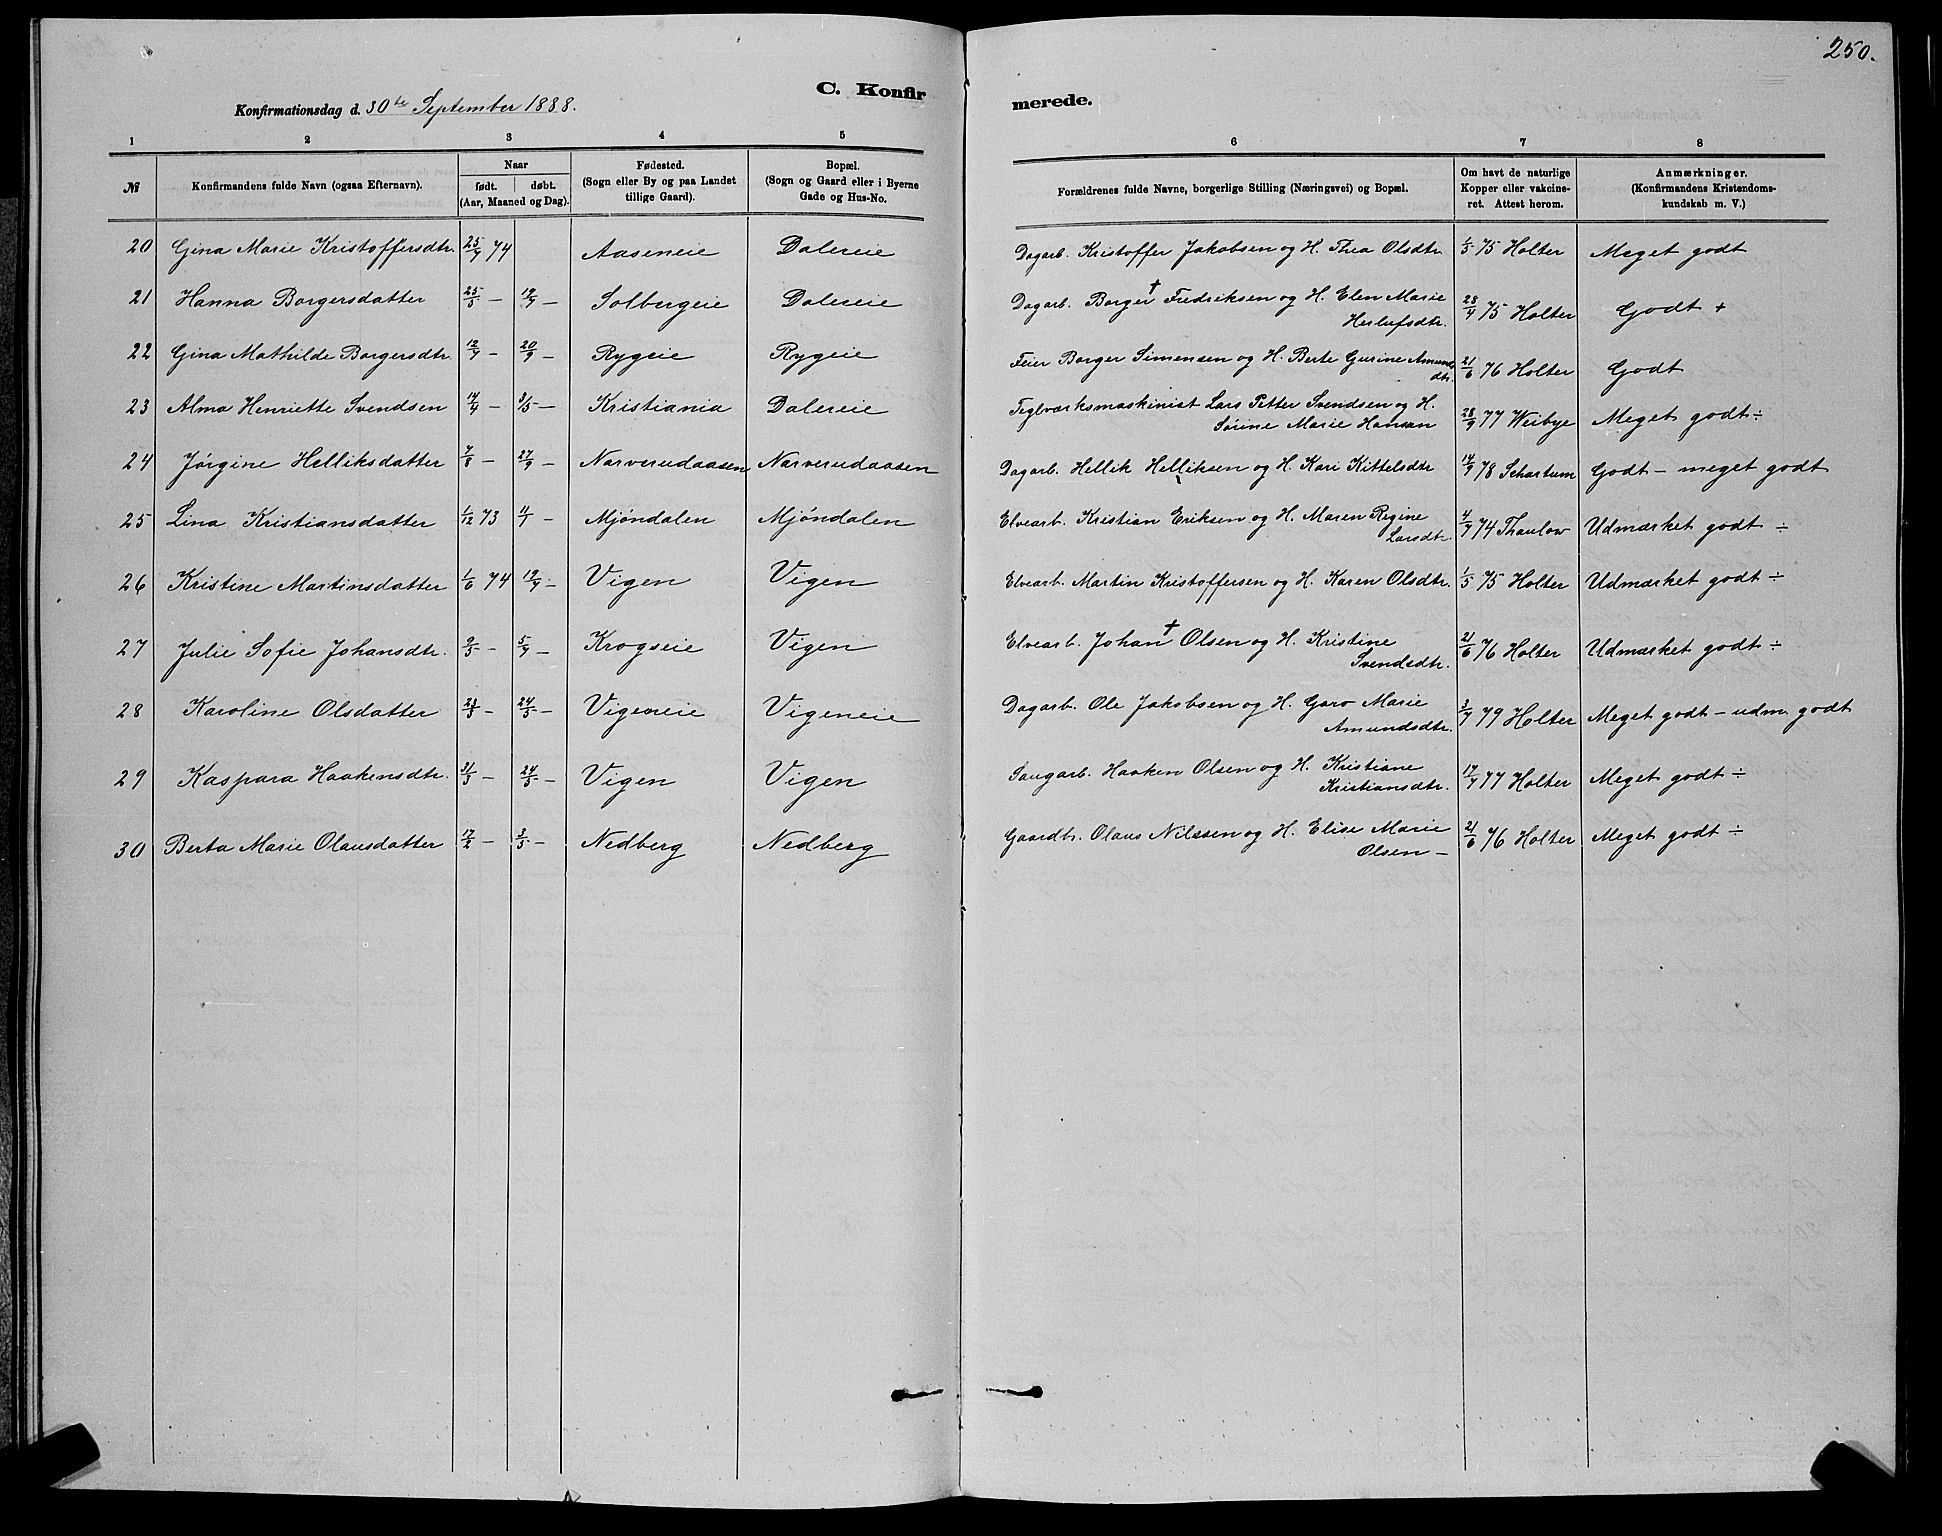 250.
C. Konfirmerede.
Konfirmationsdag d. 30te September 1888.
1 2 3 4 5 6 7 8
№ Konfirmandens fulde Navn (ogsaa Efternavn). Naar født. døbt. (Aar, Maaned og Dag). Fødested. (Sogn eller By og paa Landet tillige Gaard). Bopæl. (Sogn og Gaard eller i Byerne Gade og Hus-No. Forældrenes fulde Navne, borgerlige Stilling (Næringsvei) og Bopæl. Om havt de naturlige Kopper eller vakcineret. Attest herom. Anmærkninger. (Konfirmandens Kristendomskundskab m. V.)
20 Gina Marie Kristoffersdtr. 25/4 74 Aaseneie Dalereie Dagarb. Kristoffer Jakobsen og H. Thea Olsdtr 1/5 75 Holter Meget godt
21 Hanna Borgersdatter 25/5 — 19/7 — Solbergeie Dalereie Dagarb. Borger † Fredriksen og H. Elen Marie Herlufsdtr. 28/4 75 Holter Godt +
22 Gina Mathilde Borgersdtr. 12/7 — 20/9 — Rygeie Rygeie Feier Borger Simensen og H. Berte Gurine Amundsdtr. 21/6 76 Holter Godt
23 Alma Henriette Svendsen 14/4 — 3/5 — Kristiania Dalereie Teglværksmaskinist Lars Petter Svendsen og H. Sørine Marie Hansen 28/9 77 Weibye Meget godt ÷
24 Jørgine Helliksdatter 7/8 — 27/9 — Narverudaasen Narverudaasen Dagarb. Hellik Helliksen og H. Kari Kittelsdtr 14/9 78 Schartum Godt — meget godt
25 Lina Kristiansdatter 1/12 73 11/1 — Mjøndalen Mjøndalen Elvearb. Kristian Eriksen og H. Maren Regine Larsdtr. 4/7 74 Thaulow Udmærket godt ÷
26 Kristine Martinsdatter 1/6 74 19/7 — Vigen Vigen Elvearb. Martin Kristoffersen og H. Karen Olsdtr. 1/5 75 Holter Udmærket godt ÷
27 Julie Sofie Johansdtr. 2/3 — 5/4 — Krogseie Vigen Elvearb. Johan † Olsen og H. Kristine Svendsdtr. 21/6 76 Holter Udmærket godt ÷
28 Karoline Olsdatter 23/3 — 24/5 — Vigeneie Vigeneie Dagarb. Ole Jakobsen og H. Garo Marie Amundsdtr. 3/7 79 Holter Meget godt — udm. godt
29 Kaspara Haakensdtr. 31/3 — 24/5 — Vigen Vigen Saugarb. Haaken Olsen og H. Kristiane Kristiansdtr. 17/7 77 Holter Meget godt ÷
30 Berta Marie Olausdatter 17/2 — 3/5 — Nedberg Nedberg Gaardbr. Olaus Nilssen og H. Elise Marie Olsen — 21/6 76 Holter Meget godt ÷